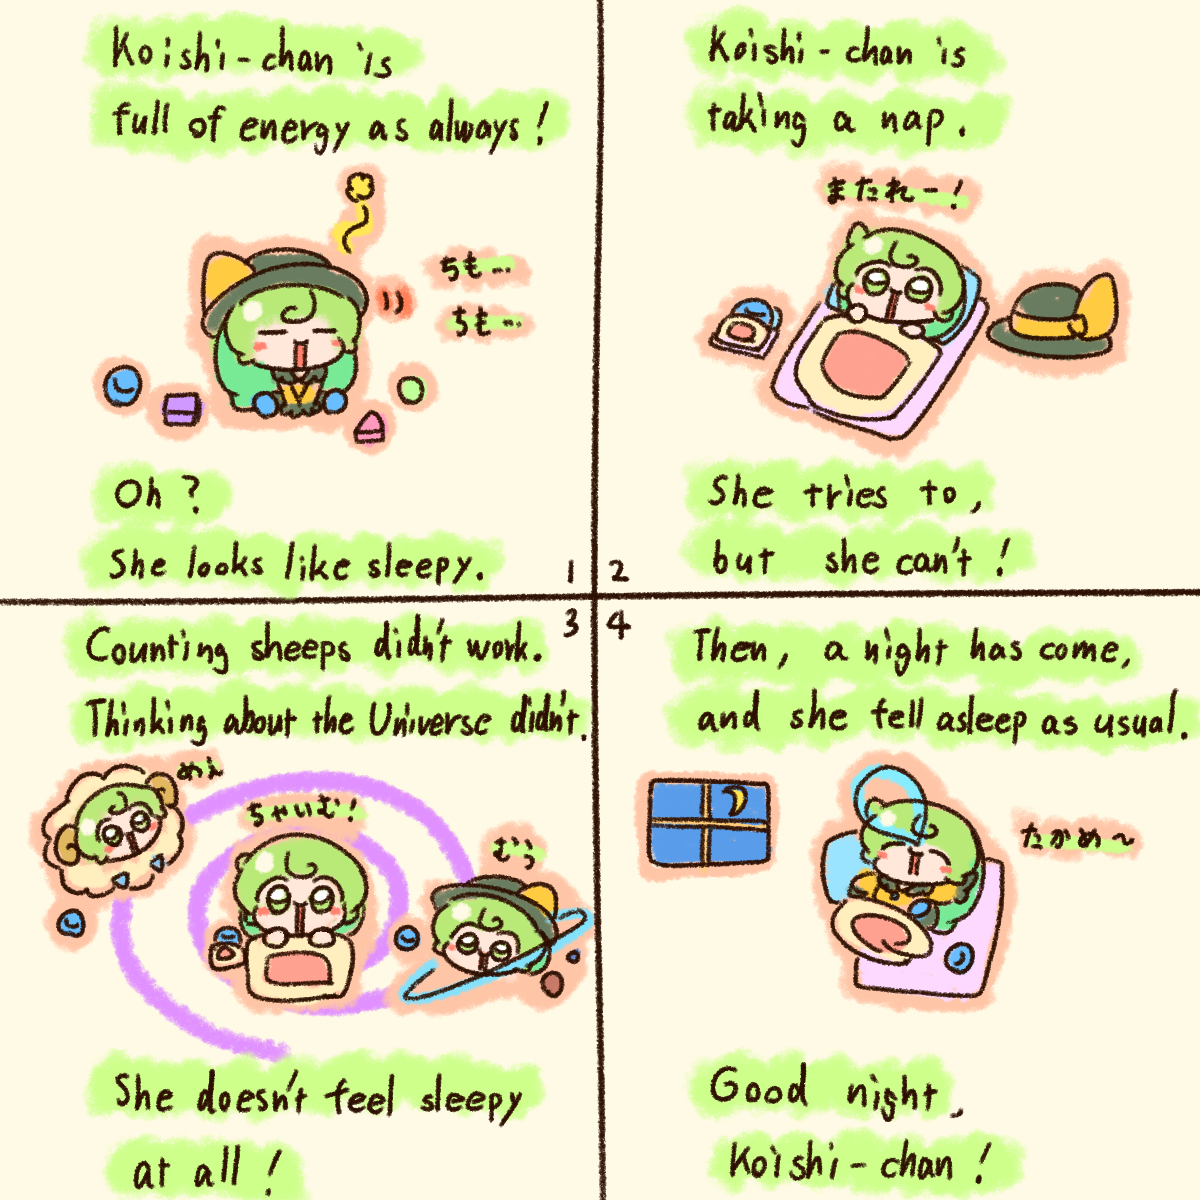 Koishi-chan is
full of energy as always!
ちも…
ちも…
Oh?
She looks like sleepy.
1
Koishi-chan is
taking a nap.
またれー!
She tries to,
but she can't!
2
Counting sheeps didn't work.
Thinking about the Universe didn't.
めぇ
ちゃいむ!
むぅ
She doesn't feel sleepy
at all!
3
Then, a night has come,
and she fell asleep as usual.
たかめ～
Good night,
Koishi-chan!
4